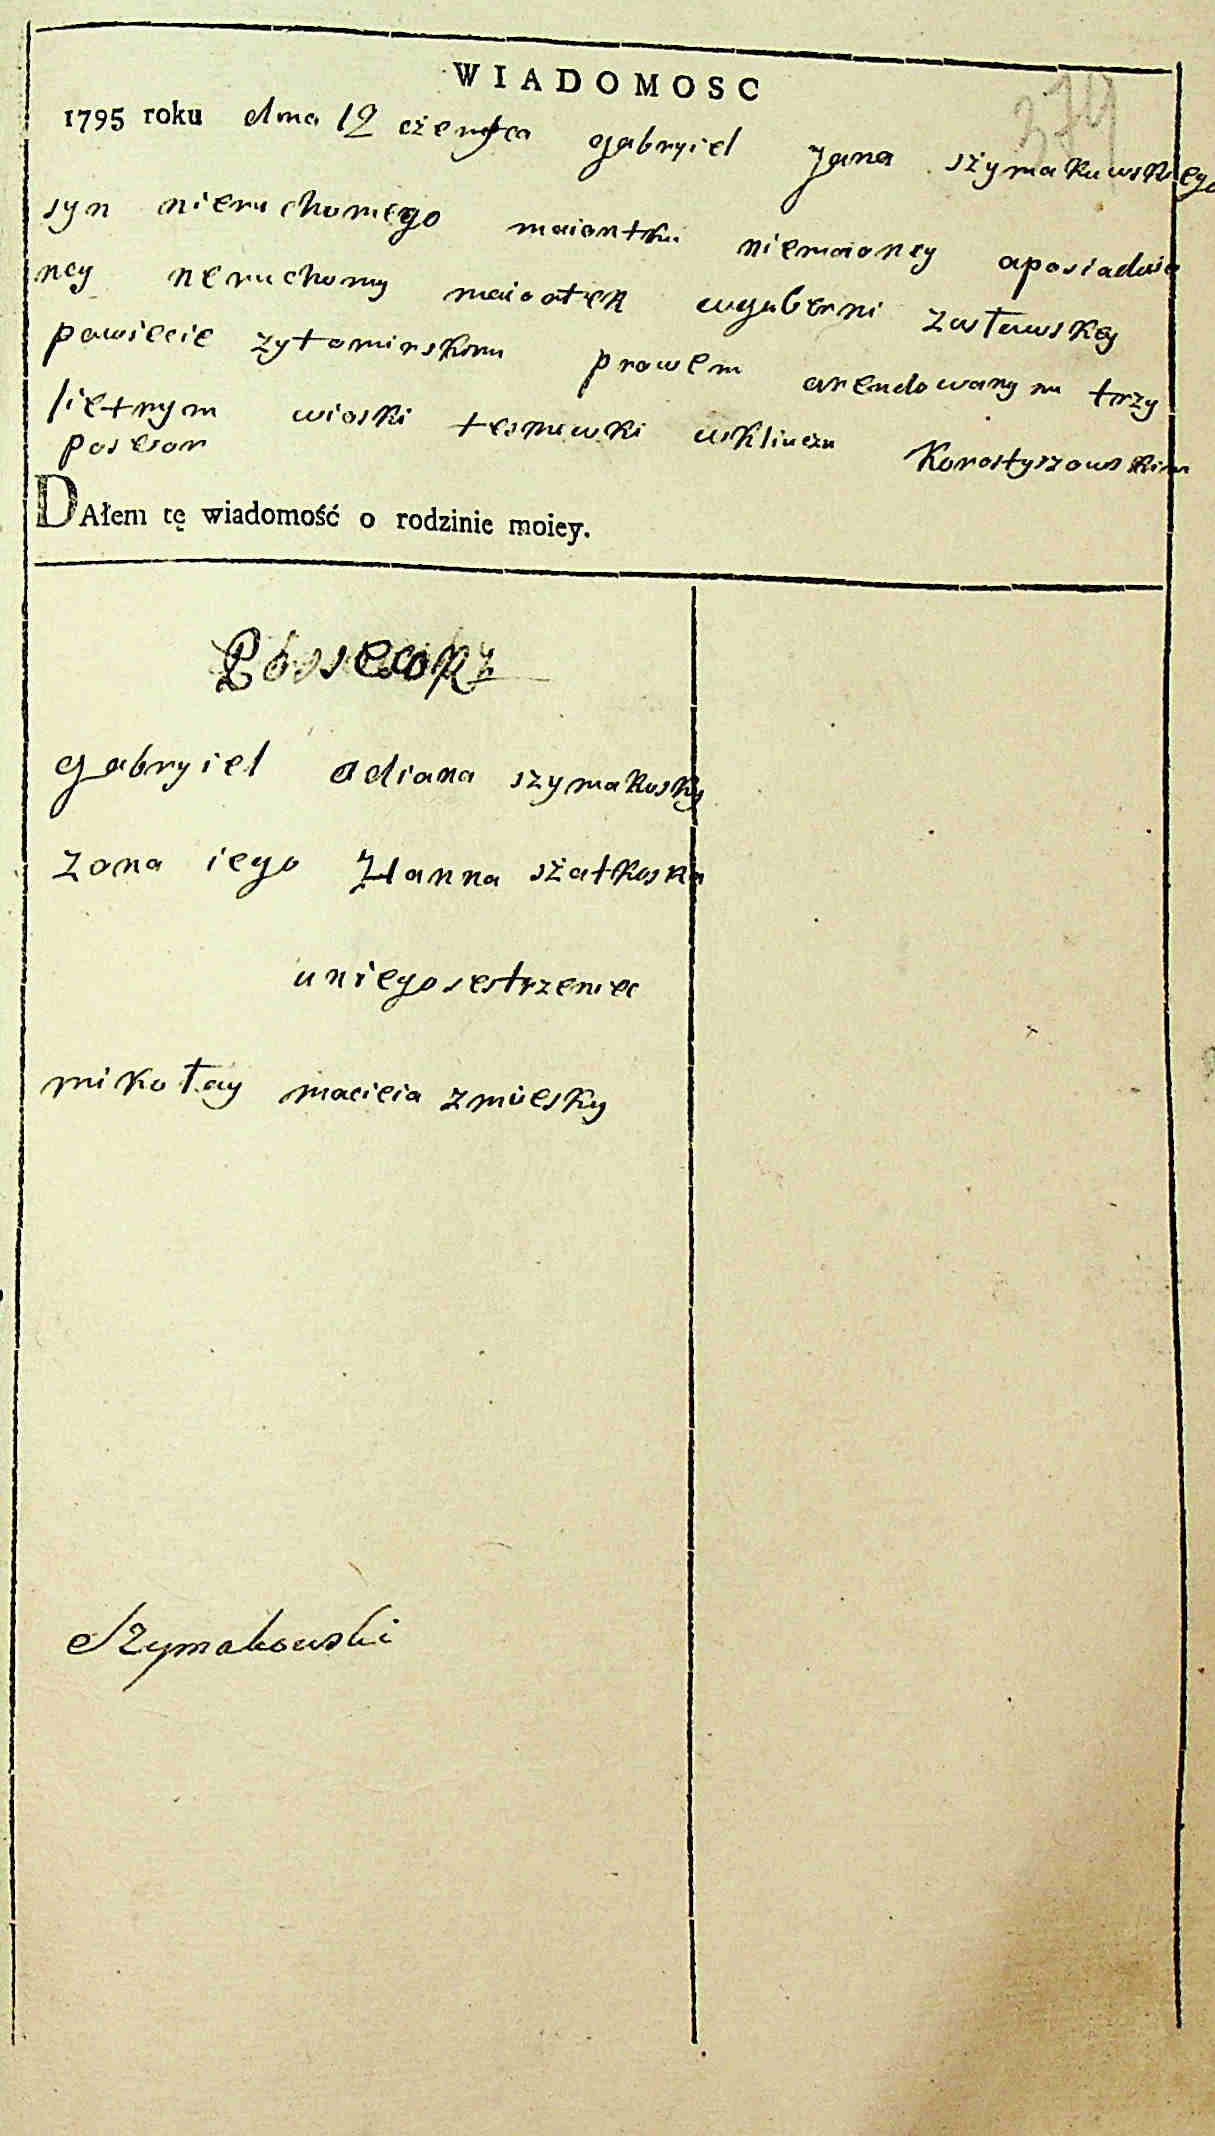 WIADOMOSC
379
1795 roku dnia 12 czerwca gabryiel Jana szymakuwskiego
syn nieruchomego maiontku niemaioncy aposiadaio
ncy neruchomy maiontek wguberni Zasławskey
powiecie zytomirskim prawem arendowanym trzy
lietnym wioski tesnuwki wkliuczu Korostyszowskim
posesor
DAłem tę wiadomość o rodzinie moiey.
Possesorz
gabryiel adiana szymakosky
zona iego Hanna szatkoska
uniego sestrzeniec
mikołay macieia zmiiesky
Szymakowski